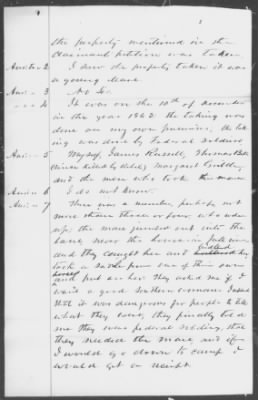 the property mentioned in the
Claimants petition was taken
Ans to 2 I saw the property taken it was
a young Mare
Ans - 3 No Sir
" - 4 It was on the 10th of December
in the year 1863. the taking was
done on my own premises. the tak
ing was done by Federal Soldiers
Ans - 5 Myself, James Russell, Thomas
Margaret
and the men who took the mare
Ans - 6 I do not know.
Ans - 7 There was a number, perhaps not
more than three or four, who rode
up, the mare jumped out into the
lane, near the house
and they caught her and bridled her
took a off one of their own
horses and put on her they asked me if I
was a good Southern
it was dangerous for people to tell
what they were, they finally told
me they were federal soldiers, that
they needed the mare and if
I would go down to camp I
would get a receipt